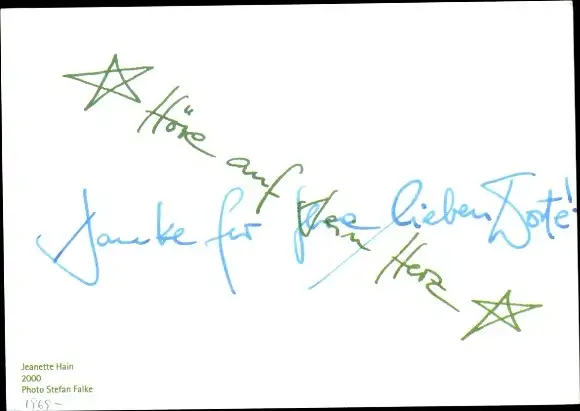 Höre auf Dein Herz
Danke für Ihre lieben Worte!
Jeanette Hain
2000
Photo Stefan Falke
1969 -